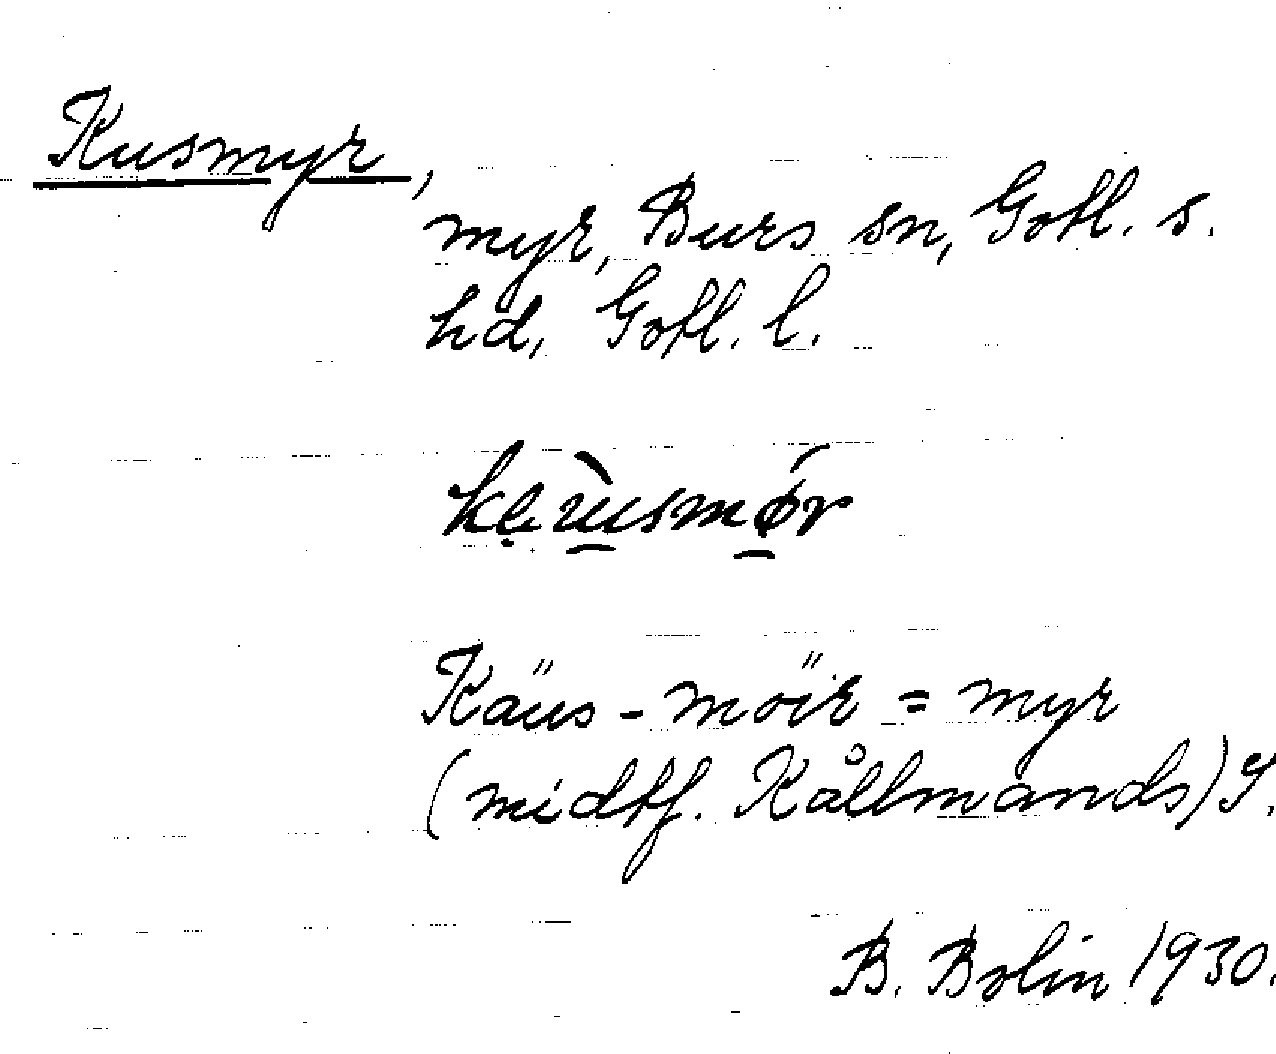 Kusmyr,
myr, Burs sn, Gotl. s.
hd, Gotl. l.
Käus - möir = myr
(midtf. Kållmands) S.
B. Bolin 1930.